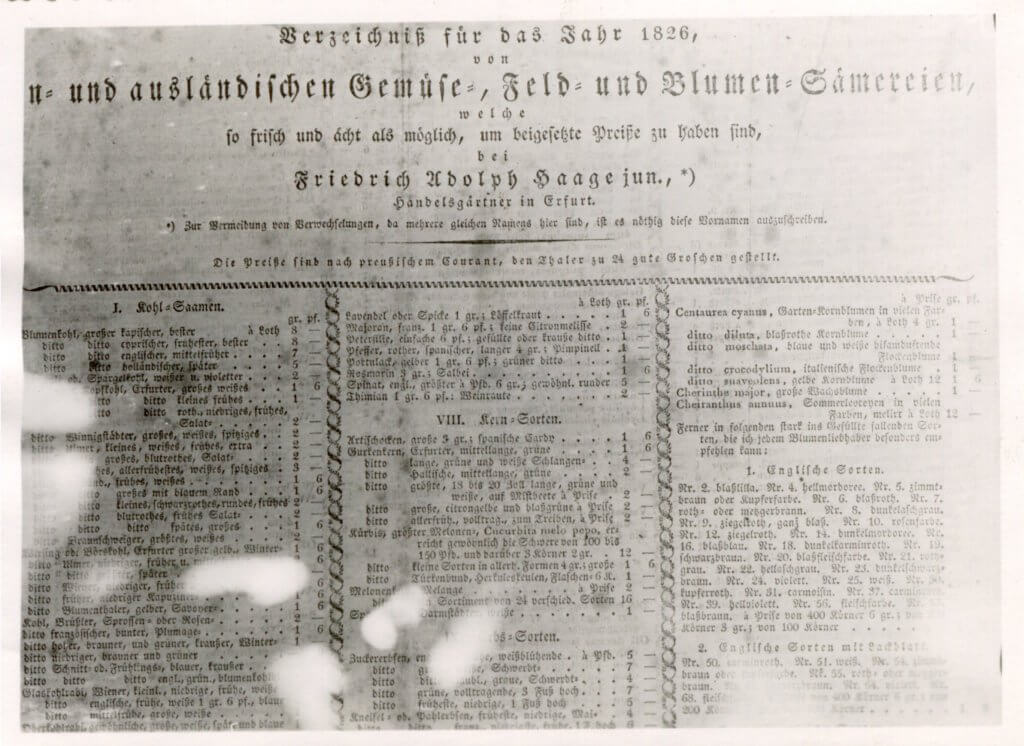 Verzeichniß für das Jahr 1826,
von
n- und ausländischen Gemüse-, Feld- und Blumen-Sämereien,
welche
so frisch und ächt als möglich, um beigesetzte Preiße zu haben sind,
bei
Friedrich Adolph Haage jun., *)
Handelsgärtner in Erfurt.
*) Zur Vermeidung von Verwechselungen, da mehrere gleichen Namens hier sind, ist es nöthig diese Vornamen auszuschreiben.
Die Preiße sind nach preußischem Courant, den Thaler zu 24 gute Groschen gestellt.
I. Kohl-Saamen.
gr. pf.
Blumenkohl, großer kapischer, bester à Loth 8 —
ditto ditto cyprischer, frühester, bester 8 —
ditto ditto englischer, mittelfrüher 7 —
ditto ditto holländischer, später 5 —
ob. Spargelkohl, weißer u. violetter 2 —
kohl, Erfurter, großes weißes 1 6
ditto kleines frühes 1 —
ditto roth., niedriges, frühes,
Salat- 2 —
ditto Winnigstädter, großes, weißes, spitziges 2 —
ditto Ulmer, kleines, weißes, frühes, extra 2 —
großes, blutrothes, Salat- 2 —
allerfrühestes, weißes, spitziges 3 —
frühes, weißes 1 6
großes mit blauem Rand 1 6
ditto kleines, schwarzrothes, rundes, frühes 2 —
ditto blutrothes, frühes Salat- 2 —
ditto ditto spätes, großes 1 6
Braunschweiger, größtes, weißes 2 —
Wirsing od. Börskohl, Erfurter großer gelb. Winter- 1 6
ditto Ulmer, niedriger, früher u. 1 6
ditto ditto später 1 —
ditto Wiener, niedriger, früher
ditto früher, niedriger Kapuziner-
ditto Blumenthaler, gelber, Savoyer-
Kohl, Brüßler, Sprossen- oder Rosen- 2 —
ditto französischer, bunter, Plumage- 1 6
ditto hoher, brauner, und grüner, krauser, Winter-
ditto niedriger, brauner und grüner
ditto Schnitt od. Frühlings-, blauer, krauser
ditto ditto ditto engl., grün., blumenkohl
Glaskohlrabi, Wiener, kleinl., niedrige, frühe, weiße
ditto englische, frühe, weiße 1 gr. 6 pf., blaue
ditto mittelfrühe, große, weiße
Oberkohlrabi, gewöhnliche, große, weiße, spät- und blaue
à Loth gr. pf.
Lavendel oder Spicke 1 gr.; Löffelkraut 1 6
Majoran, franz. 1 gr. 6 pf.; keine Citronmelisse 2 —
Petersilie, einfache 6 pf.; gefüllte oder krause ditto 1 —
Pfeffer, rother, spanischer, langer 4 gr.; Pimpinell 1 —
Portulack, gelber 1 gr. 6 pf.; grüner ditto 1 —
Rosmarin 3 gr.; Salbei 1 6
Spinat, engl., größter à Pfd. 6 gr.; gewöhnl. runder 5 —
Thimian 1 gr. 6 pf.: Weinraute 2 —
VIII. Kern-Sorten.
Artischocken, große 3 gr.; spanische Cardy 1 6
Gurkenkern, Erfurter, mittellange, grüne 1 6
ditto lange, grüne und weiße Schlangen- 4 —
ditto Hallische, mittellange, grüne 2 —
ditto größte, 18 bis 20 Zoll lange, grüne und
weiße, auf Mistbeete à Prise 2 —
ditto große, citrongelbe und blaßgrüne à Prise 2 —
ditto allerfrüh., volltrag., zum Treiben, à Prise 2 —
Kürbis, größter Melonen-, Cucurbita melo pepo,
reicht gewöhnlich die Schwere von 100 bis
150 Pfd. und darüber 3 Körner 2 gr. 12 —
ditto kleine Sorten in allerh. Formen 4 gr.; große 1 6
ditto Türkenbund, Herkuleskeulen, Flaschen- 6 K. 1 —
Melonen Melange à Prise 2 —
Sortiment von 24 verschied. Sorten 16 —
Darmstädter weiße 1 —
bs-Sorten.
Zuckererbsen, weißblühende à Pfd. 5 —
ditto Schwerdt- 7 —
ditto graue, Schwerdt- 4 —
ditto grüne, volltragende, 3 Fuß hoch 7 —
ditto früheste, niedrige, 1 Fuß hoch 5 —
Kneifel- ob. Pahlerbsen, früheste, niedrige, Mai- 4 —
à Prise gr. pf.
Centaurea cyanus, Garten-Kornblumen in vielen Far-
ben, à Loth 4 gr. 1 —
ditto diluta, blaßrothe Kornblume 1 —
ditto moschata, blaue und weiße bisamduftende
Flockenblume 1 —
ditto crocodylium, italienische Flockenblume 1 —
ditto suaveolens, gelbe Kornblume à Loth 12 1 6
Cherinthe major, große Wachsblume 1 —
Cheiranthus annuus, Sommerlevcoyen in vielen
Farben, melirt à Loth 12 —
Ferner in folgenden stark ins Gefüllte fallenden Sor-
ten, die ich jedem Blumenliebhaber besonders em-
pfehlen kann:
1. Englische Sorten.
Nr. 2. blaßlilla. Nr. 4. hellmordoree. Nr. 5. zimmt-
braun oder Kupferfarbe. Nr. 6. blaßroth. Nr. 7.
roth- oder metzgerbraun. Nr. 8. dunkelaschgrau.
Nr. 9. ziegelroth, ganz blaß. Nr. 10. rosenfarbe.
Nr. 12. ziegelroth. Nr. 14. dunkelmordoree. Nr.
16. blaßblau. Nr. 18. dunkelkarminroth. Nr. 19.
schwarzbraun. Nr. 20. blaßfleischfarbe. Nr. 21. roth-
grau. Nr. 22. hellaschgrau. Nr. 23. dunkelschwarz-
braun. Nr. 24. violett. Nr. 25. weiß.
kupferroth. Nr. 31. carmoisin. Nr. 37.
Nr. 39. hellviolett. Nr. 56. fleischfarbe.
blaßbraun. à Prise von 400 Körner 6 gr.;
Körner 3 gr.; von 100 Körner
2. Englische Sorten mit Lackblatt.
Nr. 50. carminroth. Nr. 51. weiß. Nr. 54.
braun oder Nr. 55. roth- oder
braun. Nr. 64.
68. 400 Körner 6 gr.
200 Körner 1 —